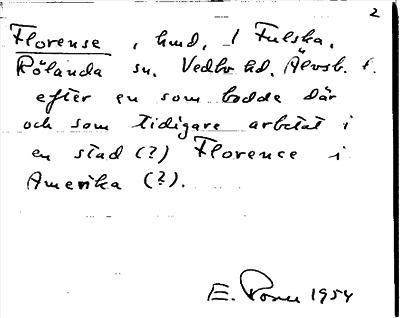 2
Florense, hmd, / Fulska,
Rölanda sn. Vedbo hd, Älvsb. l.
efter en som bodde där
och som tidigare arbetat i
en stad (?) Florence i
Amerika (?).
E. 1954